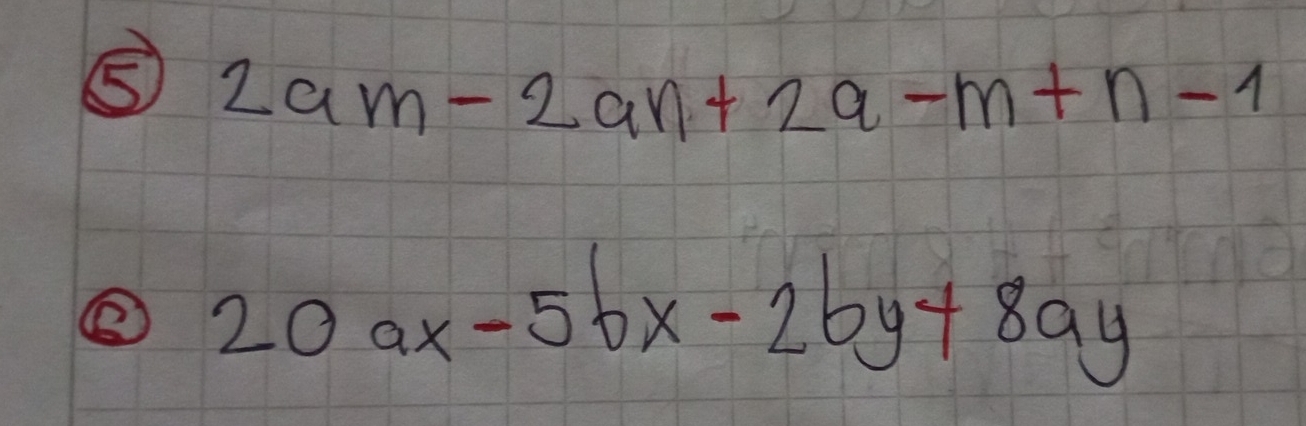 ⑤ 2am - 2an + 2a - m + n - 1
⑥ 20ax - 5bx - 2by + 8ay